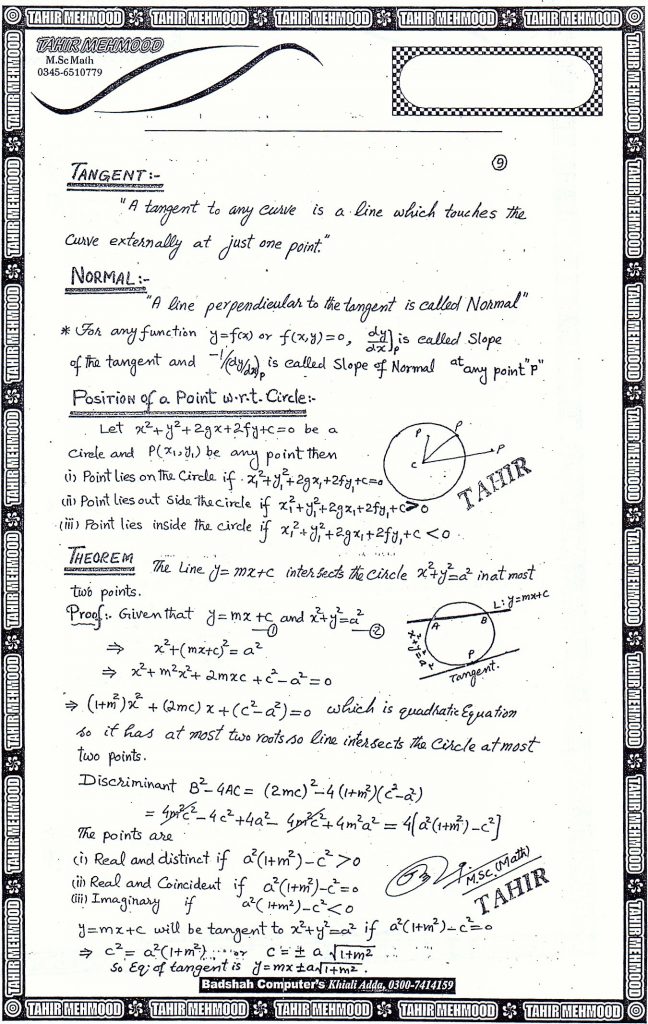 TAHIR MEHMOOD TAHIR MEHMOOD TAHIR MEHMOOD TAHIR MEHMOOD TAHIR MEHMOOD
TAHIR MEHMOOD
M.Sc Math
0345-6510779
9
TANGENT:-
"A tangent to any curve is a line which touches the
curve externally at just one point."
NORMAL:-
"A line perpendicular to the tangent is called Normal"
* For any function y=f(x) or f(x,y)=0, dy/dx]p is called Slope
of the tangent and -1/(dy/dx)p is called Slope of Normal at any point "P"
POSITION of a Point w.r.t. Circle:-
Let x²+y²+2gx+2fy+c=0 be a
circle and P(x₁,y₁) be any point then
(i) Point lies on the Circle if x₁²+y₁²+2gx₁+2fy₁+c=0
(ii) Point lies out side the circle if x₁²+y₁²+2gx₁+2fy₁+c>0
(iii) Point lies inside the circle if x₁²+y₁²+2gx₁+2fy₁+c<0
P P P
C
TAHIR
THEOREM The Line y=mx+c intersects the circle x²+y²=a² in at most
two points.
Proof:- Given that y=mx+c —① and x²+y²=a² —②
⇒ x²+(mx+c)²=a²
⇒ x²+m²x²+2mxc+c²-a²=0
L: y=mx+c
A B
x²+y²=a²
P
Tangent.
⇒ (1+m²)x²+(2mc)x+(c²-a²)=0 which is quadratic Equation
so it has at most two roots so line intersects the Circle at most
two points.
Discriminant B²-4AC = (2mc)²-4(1+m²)(c²-a²)
= 4m²c²-4c²+4a²-4m²c²+4m²a² = 4[a²(1+m²)-c²]
The points are
(i) Real and distinct if a²(1+m²)-c²>0
(ii) Real and Coincident if a²(1+m²)-c²=0
(iii) Imaginary if a²(1+m²)-c²<0
M.SC. (Math)
TAHIR
y=mx+c will be tangent to x²+y²=a² if a²(1+m²)-c²=0
⇒ c²=a²(1+m²) or c=±a√1+m²
So Eq: of tangent is y=mx±a√1+m².
Badshah Computer's Khiali Adda, 0300-7414159
TAHIR MEHMOOD TAHIR MEHMOOD TAHIR MEHMOOD TAHIR MEHMOOD TAHIR MEHMOOD